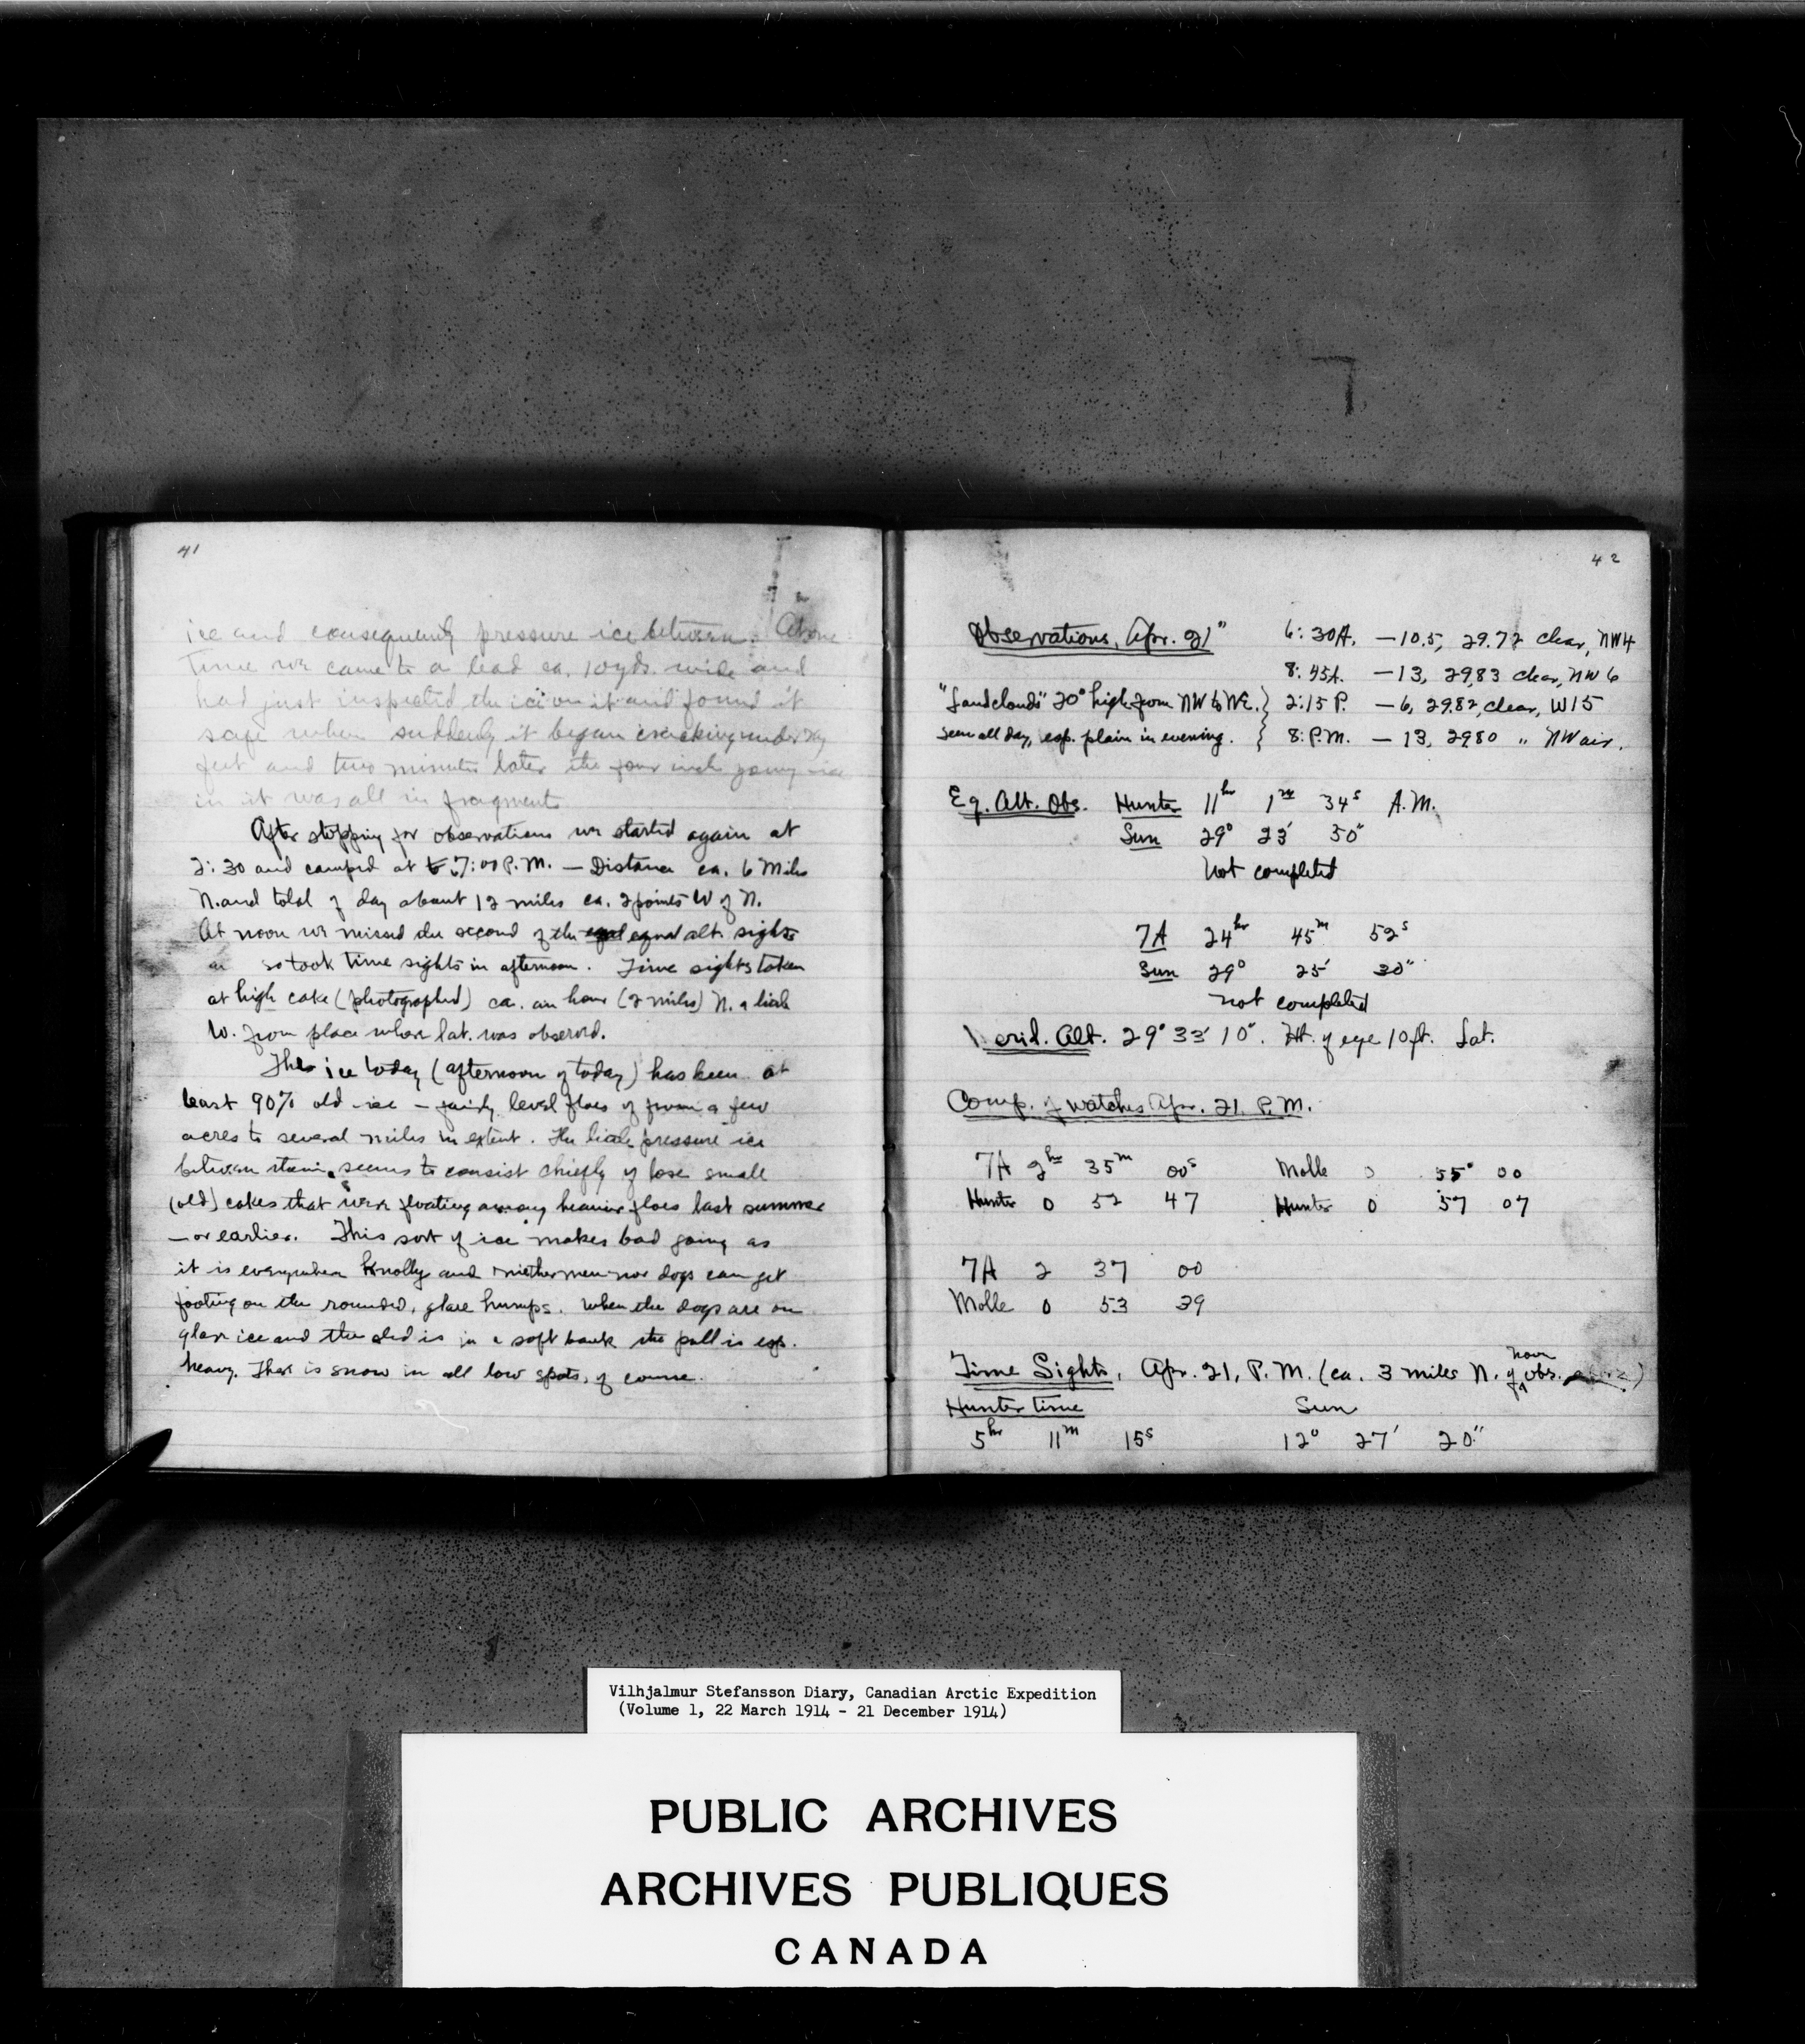 41
ice and consequently pressure ice between. At one
time we came to a lead ca. 10 yds. wide and
had just inspected the ice on it and found it
safe when suddenly it began cracking under my
feet and two minutes later the four inch young ice
in it was all in fragments
After stopping for observations we started again at
2:30 and camped at 7:00 P.M. — Distance ca. 6 Miles
N. and total of day about 12 miles ca. 2 points W of N.
At noon we missed the second of the equal alt. sights
so took time sights in afternoon. Time sights taken
at high cake (photographed) ca. an hour (2 miles) N. a little
W. from place where lat. was observed.
The ice today (afternoon of today) has been at
least 90% old ice — fairly level floes of from a few
acres to several miles in extent. The little pressure ice
between them seems to consist chiefly of lose small
(old) cakes that were floating among heavier floes last summer
— or earlier. This sort of ice makes bad going as
it is everywhere knolly and niether men nor dogs can get
footing on the rounded, glare humps. When the dogs are on
glare ice and the sled is in a soft bank the pull is esp.
heavy. Ther is snow in all low spots, of course.
42
Observations, Apr. 21" 6:30A. —10.5, 29.72 clear, NW4
8:45A. —13, 29.83 clear, NW 6
"Landclouds" 20° high from NW to NE. } 2:15 P. —6, 29.82, clear, W15
seen all day, esp. plain in evening. } 8: P.M. — 13, 2980 " NW air.
Eq. Alt. Obs. Hunter 11hr 1m 34s A.M.
Sun 29° 23' 50"
Not completed
7A 24hr 45m 52s
Sun 29° 25' 30"
not completed
erid. Alt. 29° 33' 10". Ht. of eye 10 ft. Lat.
Comp. of watches Apr. 21, P.M.
7A 2hr 35m 00s Molle 0 55 00
Hunter 0 52 47 Hunter 0 57 07
7A 2 37 00
Molle 0 53 39
Time Sights, Apr. 21, P.M. (ca. 3 miles N. of noon obs.)
Hunter time Sun
5hr 11m 15s 12° 27' 20"
Vilhjalmur Stefansson Diary, Canadian Arctic Expedition
(Volume 1, 22 March 1914 - 21 December 1914)
PUBLIC ARCHIVES
ARCHIVES PUBLIQUES
CANADA